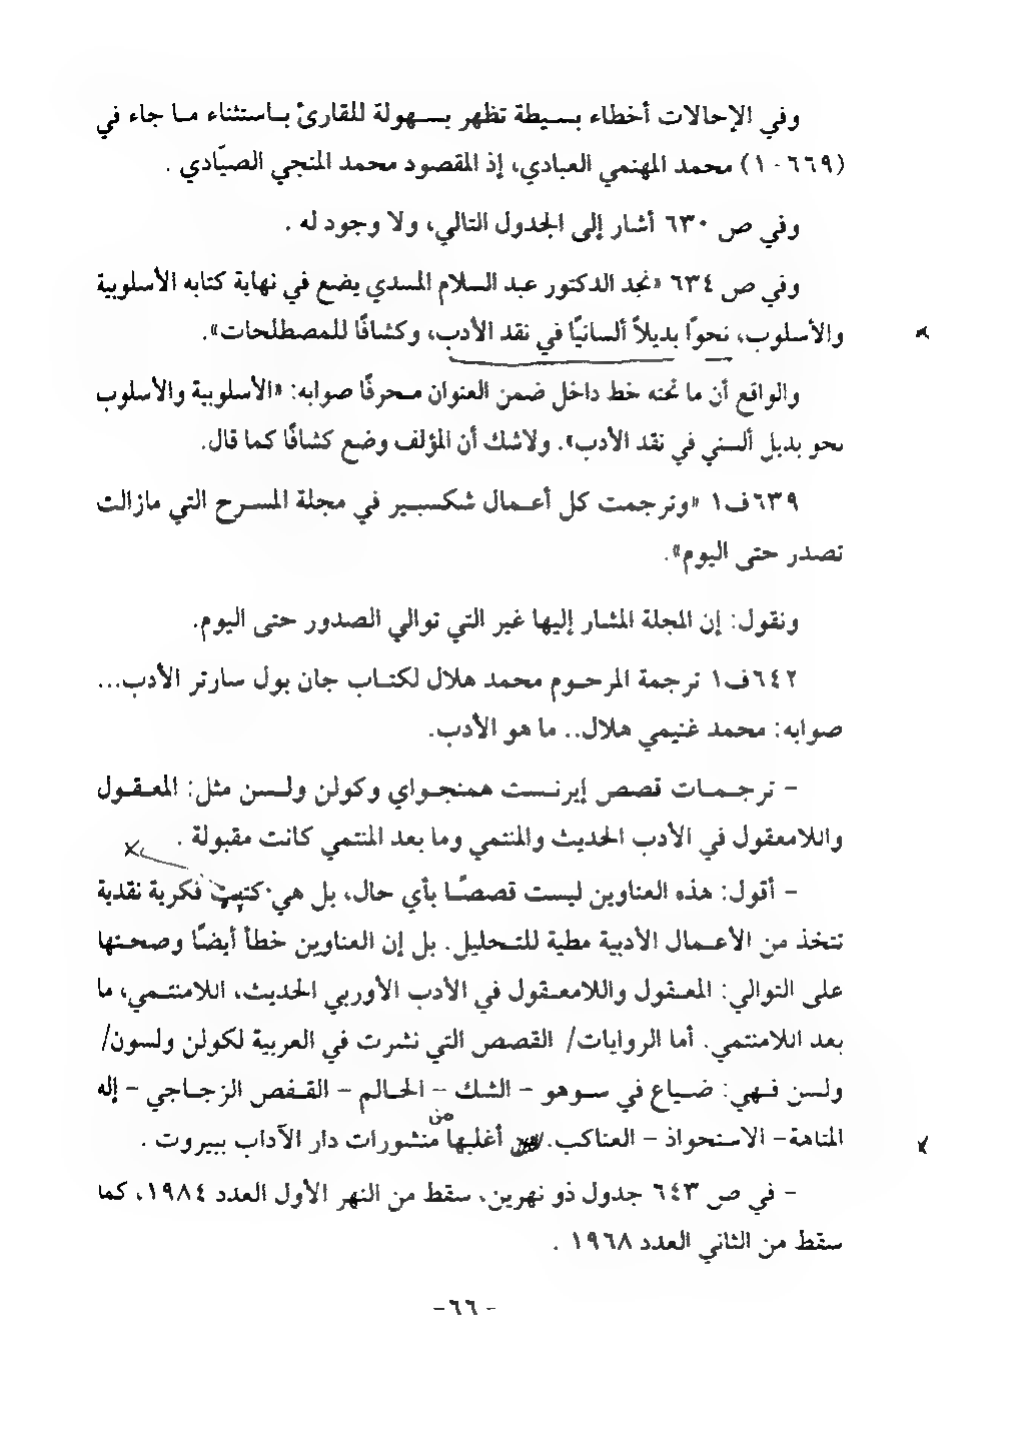 وفي الإحالات أخطاء بسيطة تظهر بسهولة للقارئ باستثناء ما جاء في
(٦٦٩-١٠) محمد المهنمي العبادي، إذ المقصود محمد المنجي الصيّادي .
وفي ص ٦٣٠ أشار إلى الجدول التالي، ولا وجود له .
وفي ص ٦٣٤ «نجد الدكتور عبد السلام المسدي يضع في نهاية كتابه الأسلوبية
والأسلوب، نحوًا بديلاً ألسانيًا في نقد الأدب، وكشافًا للمصطلحات».
والواقع أن ما تحته خط داخل ضمن العنوان محرفًا صوابه: «الأسلوبية والأسلوب
نحو بديل ألسني في نقد الأدب». ولاشك أن المؤلف وضع كشافًا كما قال.
٦٣٩ف١ «وترجمت كل أعمال شكسبير في مجلة المسرح التي مازالت
تصدر حتى اليوم».
ونقول: إن المجلة المشار إليها غير التي توالي الصدور حتى اليوم.
٦٤٢ف١ ترجمة المرحوم محمد هلال لكتاب جان بول سارتر الأدب...
صوابه: محمد غنيمي هلال.. ما هو الأدب.
- ترجمات قصص إيرنست همنجواي وكولن ولسن مثل: المعقول
واللامعقول في الأدب الحديث والمنتمي وما بعد المنتمي كانت مقبولة .
- أقول: هذه العناوين ليست قصصًا بأي حال، بل هي كتب فكرية نقدية
تتخذ من الأعمال الأدبية مطية للتحليل. بل إن العناوين خطأ أيضًا وصحتها
على التوالي: المعقول واللامعقول في الأدب الأوربي الحديث، اللامنتمي، ما
بعد اللامنتمي. أما الروايات/ القصص التي نشرت في العربية لكولن ولسون/
ولسن فهي: ضياع في سوهو - الشك - الحالم - القفص الزجاجي - إله
المتاهة- الاستحواذ - العناكب. أغلبها من منشورات دار الآداب ببيروت .
- في ص ٦٤٣ جدول ذو نهرين، سقط من النهر الأول العدد ١٩٨٤، كما
سقط من الثاني العدد ١٩٦٨ .
-٦٦-